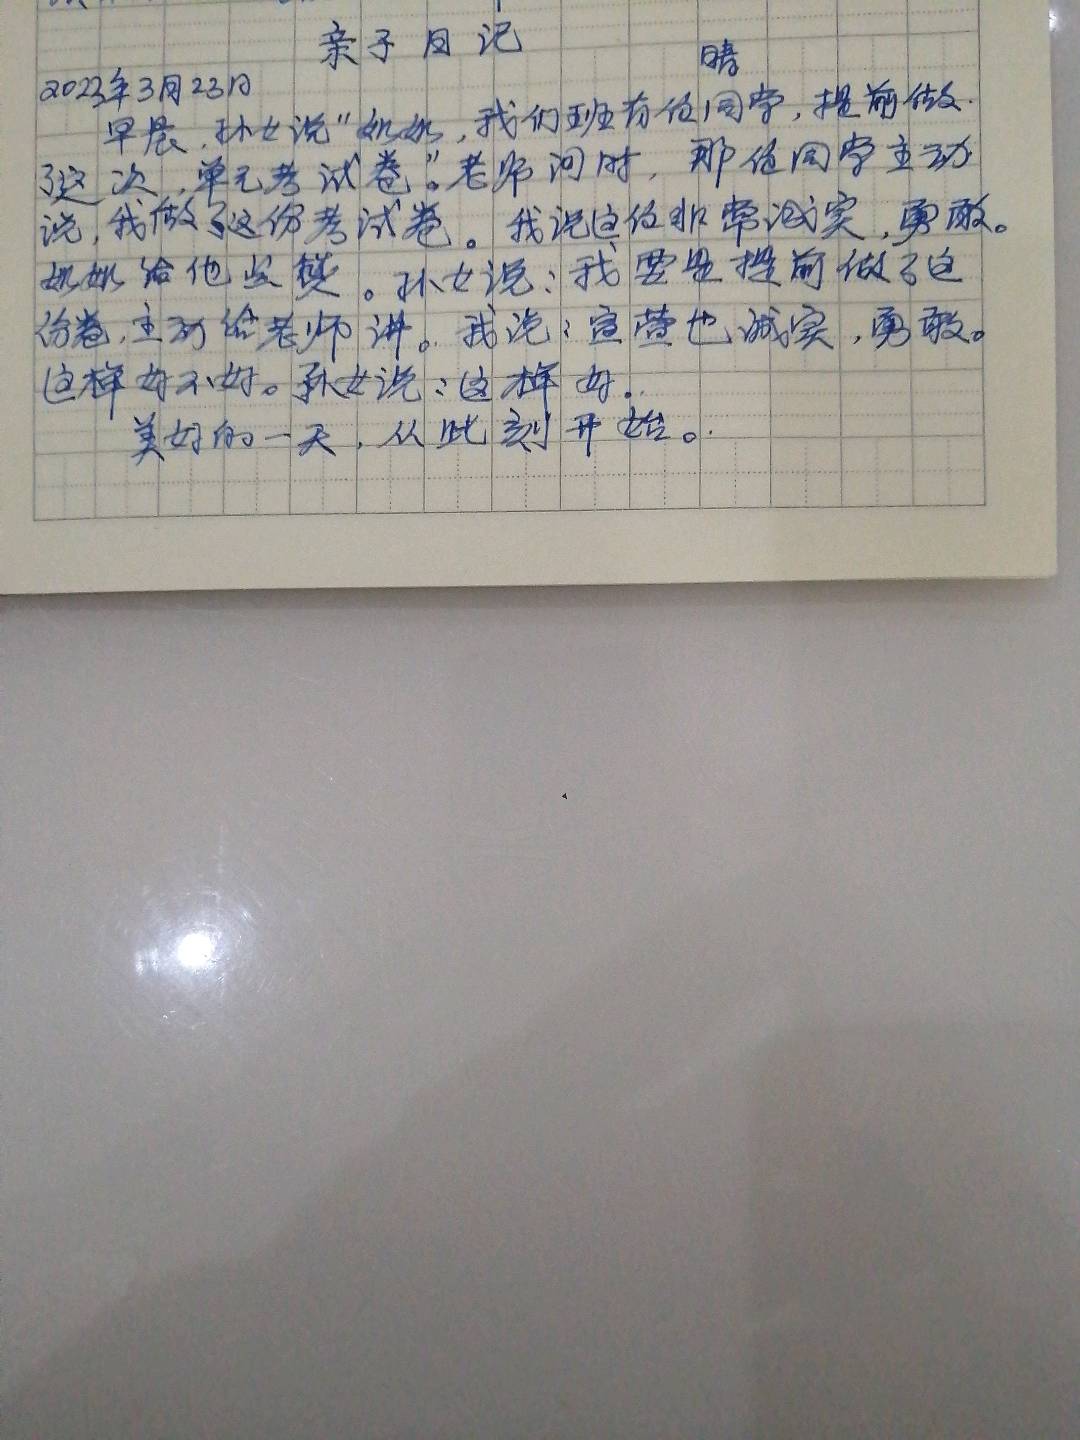 亲子日记
晴
2023年3月23日
早晨,孙女说"奶奶,我们班有位同学,提前做
了这次,单元考试卷"。老师问时,那位同学主动
说,我做了这份考试卷。我说这位非常诚实,勇敢。
奶奶给他点赞。孙女说:我要是提前做了这
份卷,主动给老师讲。我说:宣萱也诚实,勇敢。
这样好不好。孙女说:这样好。
美好的一天,从此刻开始。